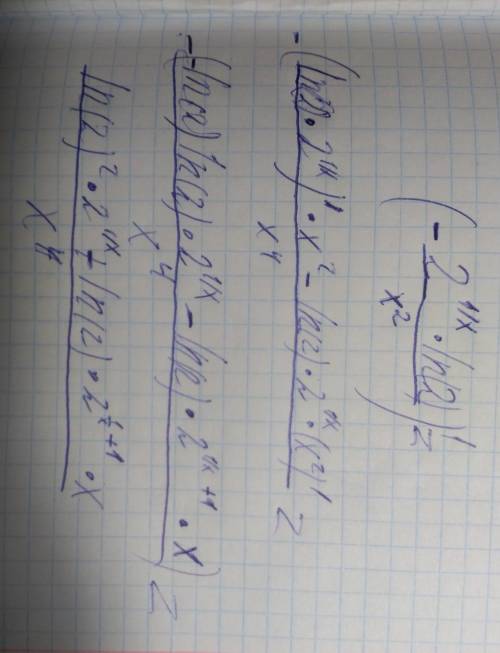 (- 2^{1/x} · ln(2) / x^2)' =
- ((ln(2) · 2^{1/x})' · x^2 - ln(2) · 2^{1/x} · (x^2)') / x^4 =
- (-ln(2) ln(2) · 2^{1/x} - ln(2) · 2^{1/x+1} · x) / x^4 =
ln(2)^2 · 2^{1/x} + ln(2) · 2^{1/x+1} · x / x^4